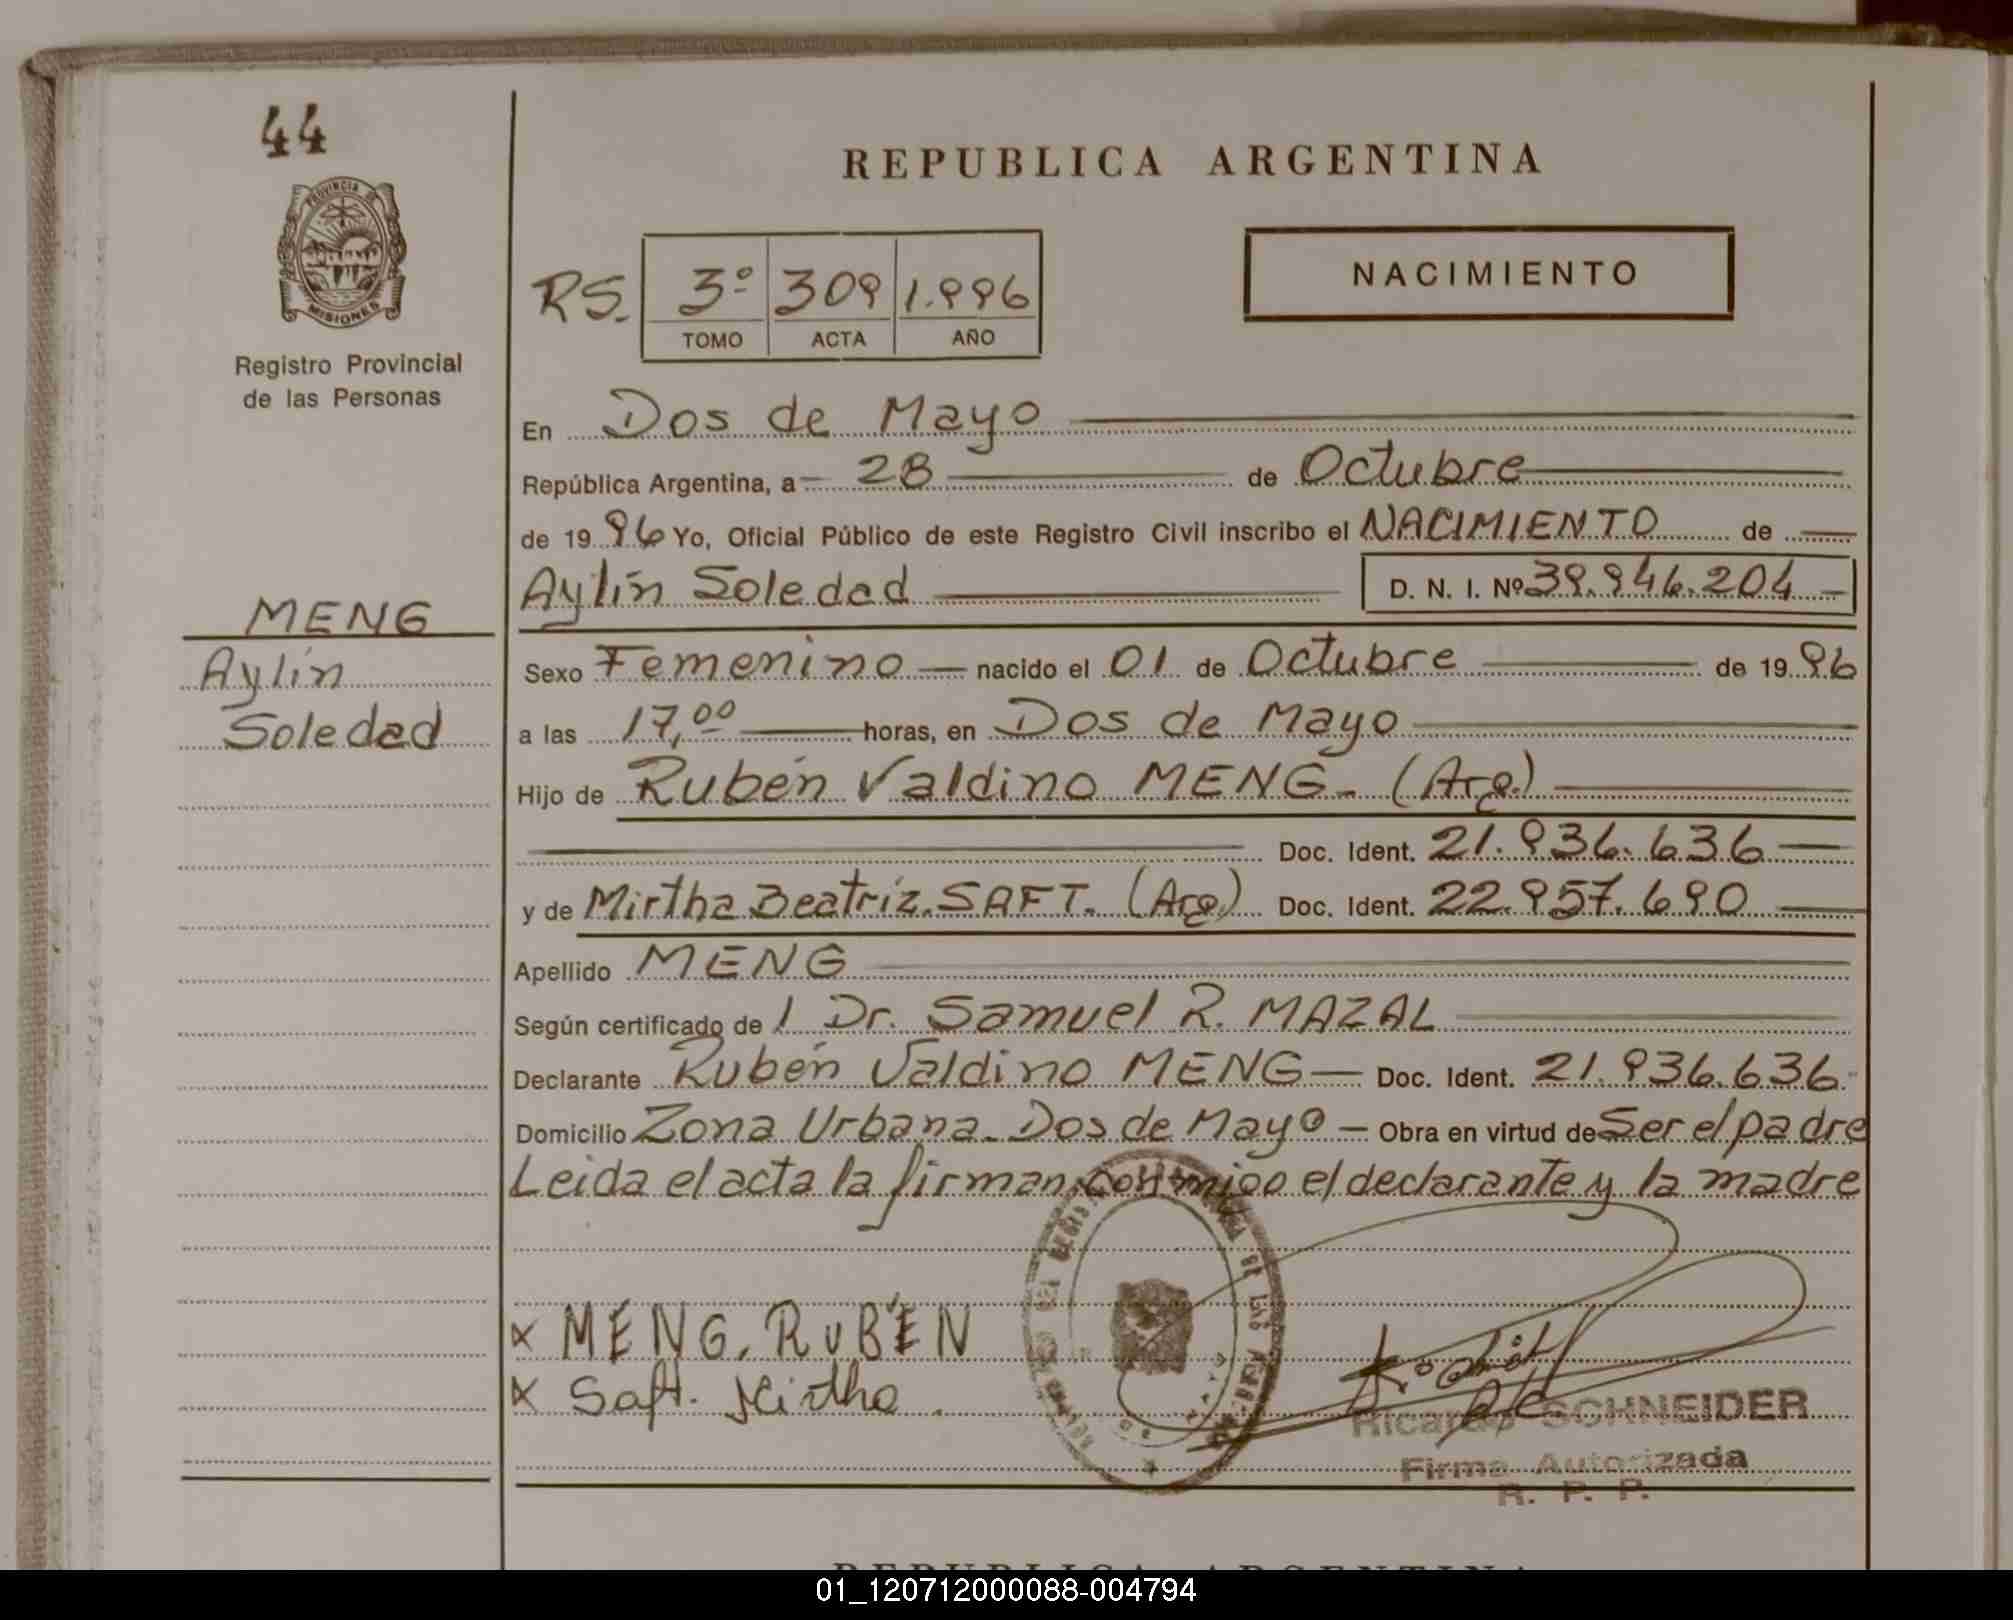 44
REPUBLICA ARGENTINA
PROVINCIA DE
MISIONES
Registro Provincial
de las Personas
RS. 3º 309 1.996
TOMO ACTA AÑO
NACIMIENTO
En Dos de Mayo
República Argentina, a 28 de Octubre
de 19 96 Yo, Oficial Público de este Registro Civil inscribo el NACIMIENTO de
Aylín Soledad D. N. I. Nº 39.946.204
MENG
Aylín
Soledad
Sexo Femenino nacido el 01 de Octubre de 19 96
a las 17,00 horas, en Dos de Mayo
Hijo de Rubén Valdino MENG. (Arg.)
Doc. Ident. 21.936.636
y de Mirtha Beatríz SAFT. (Arg.) Doc. Ident. 22.957.690
Apellido MENG
Según certificado de 1 Dr. Samuel R. MAZAL
Declarante Rubén Valdino MENG Doc. Ident. 21.936.636
Domicilio Zona Urbana. Dos de Mayo Obra en virtud de Ser el padre
Leida el acta la firman conmigo el declarante y la madre
x MENG, RUBÉN
x Saft. Mirtha.
Ricardo SCHNEIDER
Firma Autorizada
R. P. P.
REPUBLICA ARGENTINA
01_120712000088-004794